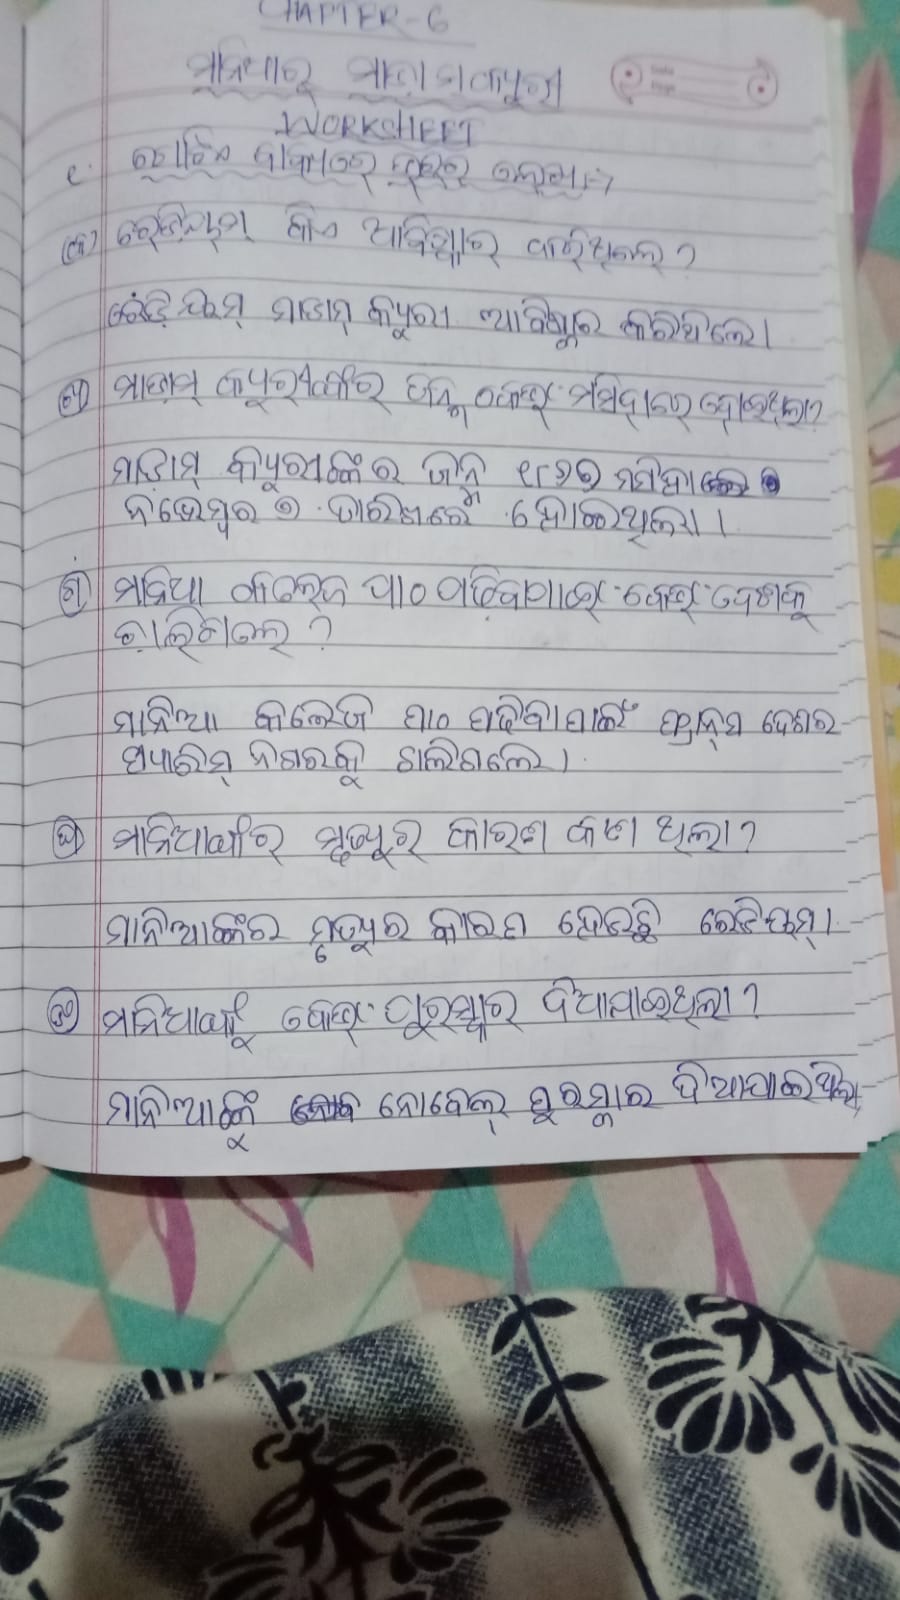 CHAPTER-6
ମାନିଆରୁ ମାଡ଼ାମ କ୍ୟୁରୀ
WORKSHEET
୧. ଗୋଟିଏ ବାକ୍ୟରେ ଉତ୍ତର ଲେଖ:-
(କ) ରେଡ଼ିୟମ୍ କିଏ ଆବିଷ୍କାର କରିଥିଲେ ?
ରେଡ଼ିୟମ୍ ମାଡାମ୍ କ୍ୟୁରୀ ଆବିଷ୍କାର କରିଥିଲେ।
(ଖ) ମାଡାମ୍ କ୍ୟୁରୀଙ୍କର ଜନ୍ମ କେଉଁ ମସିହାରେ ହୋଇଥିଲା?
ମାଡାମ୍ କ୍ୟୁରୀଙ୍କର ଜନ୍ମ ୧୮୬୭ ମସିହାରେ
ନଭେମ୍ବର ୭ ତାରିଖରେ ହୋଇଥିଲା।
(ଗ) ମାନିଆ କଲେଜ ପାଠ ପଢ଼ିବାପାଇଁ କେଉଁ ଦେଶକୁ
ଚାଲିଗଲେ ?
ମାନିଆ କଲେଜ ପାଠ ପଢିବାପାଇଁ ଫ୍ରାନ୍ସ ଦେଶର
ପ୍ୟାରିସ୍ ନଗରକୁ ଚାଲିଗଲେ।
(ଘ) ମାନିଆଙ୍କର ମୃତ୍ୟୁର କାରଣ କଣ ଥିଲା ?
ମାନିଆଙ୍କର ମୃତ୍ୟୁର କାରଣ ହେଉଛି ରେଡିୟମ୍।
(ଙ) ମାନିଆଙ୍କୁ କେଉଁ ପୁରସ୍କାର ଦିଆଯାଇଥିଲା ?
ମାନିଆଙ୍କୁ ନୋବେଲ୍ ପୁରସ୍କାର ଦିଆଯାଇଥିଲା